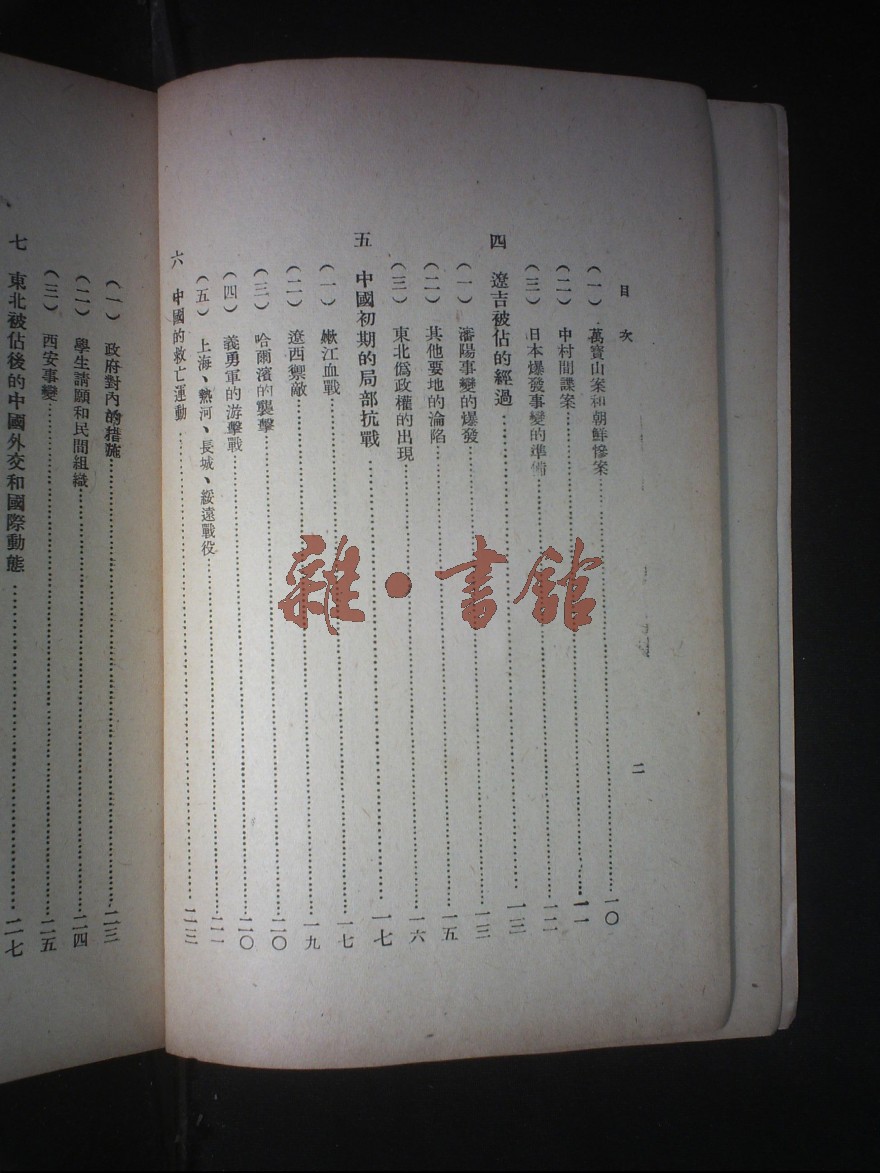 目次
二
(一) 萬寶山案和朝鮮慘案……一〇
(二) 中村間諜案……一一
(三) 日本爆發事變的準備……一二
四 遼吉被佔的經過……一三
(一) 瀋陽事變的爆發……一三
(二) 其他要地的淪陷……一五
(三) 東北僞政權的出現……一六
五 中國初期的局部抗戰……一七
(一) 嫩江血戰……一七
(二) 遼西禦敵……一九
(三) 哈爾濱的襲擊……二〇
(四) 義勇軍的游擊戰……二〇
(五) 上海、熱河、長城、綏遠戰役……二一
六 中國的救亡運動……二三
(一) 政府對內的措施……二三
(二) 學生請願和民間組織……二四
(三) 西安事變……二五
七 東北被佔後的中國外交和國際動態……二七
雜·書館